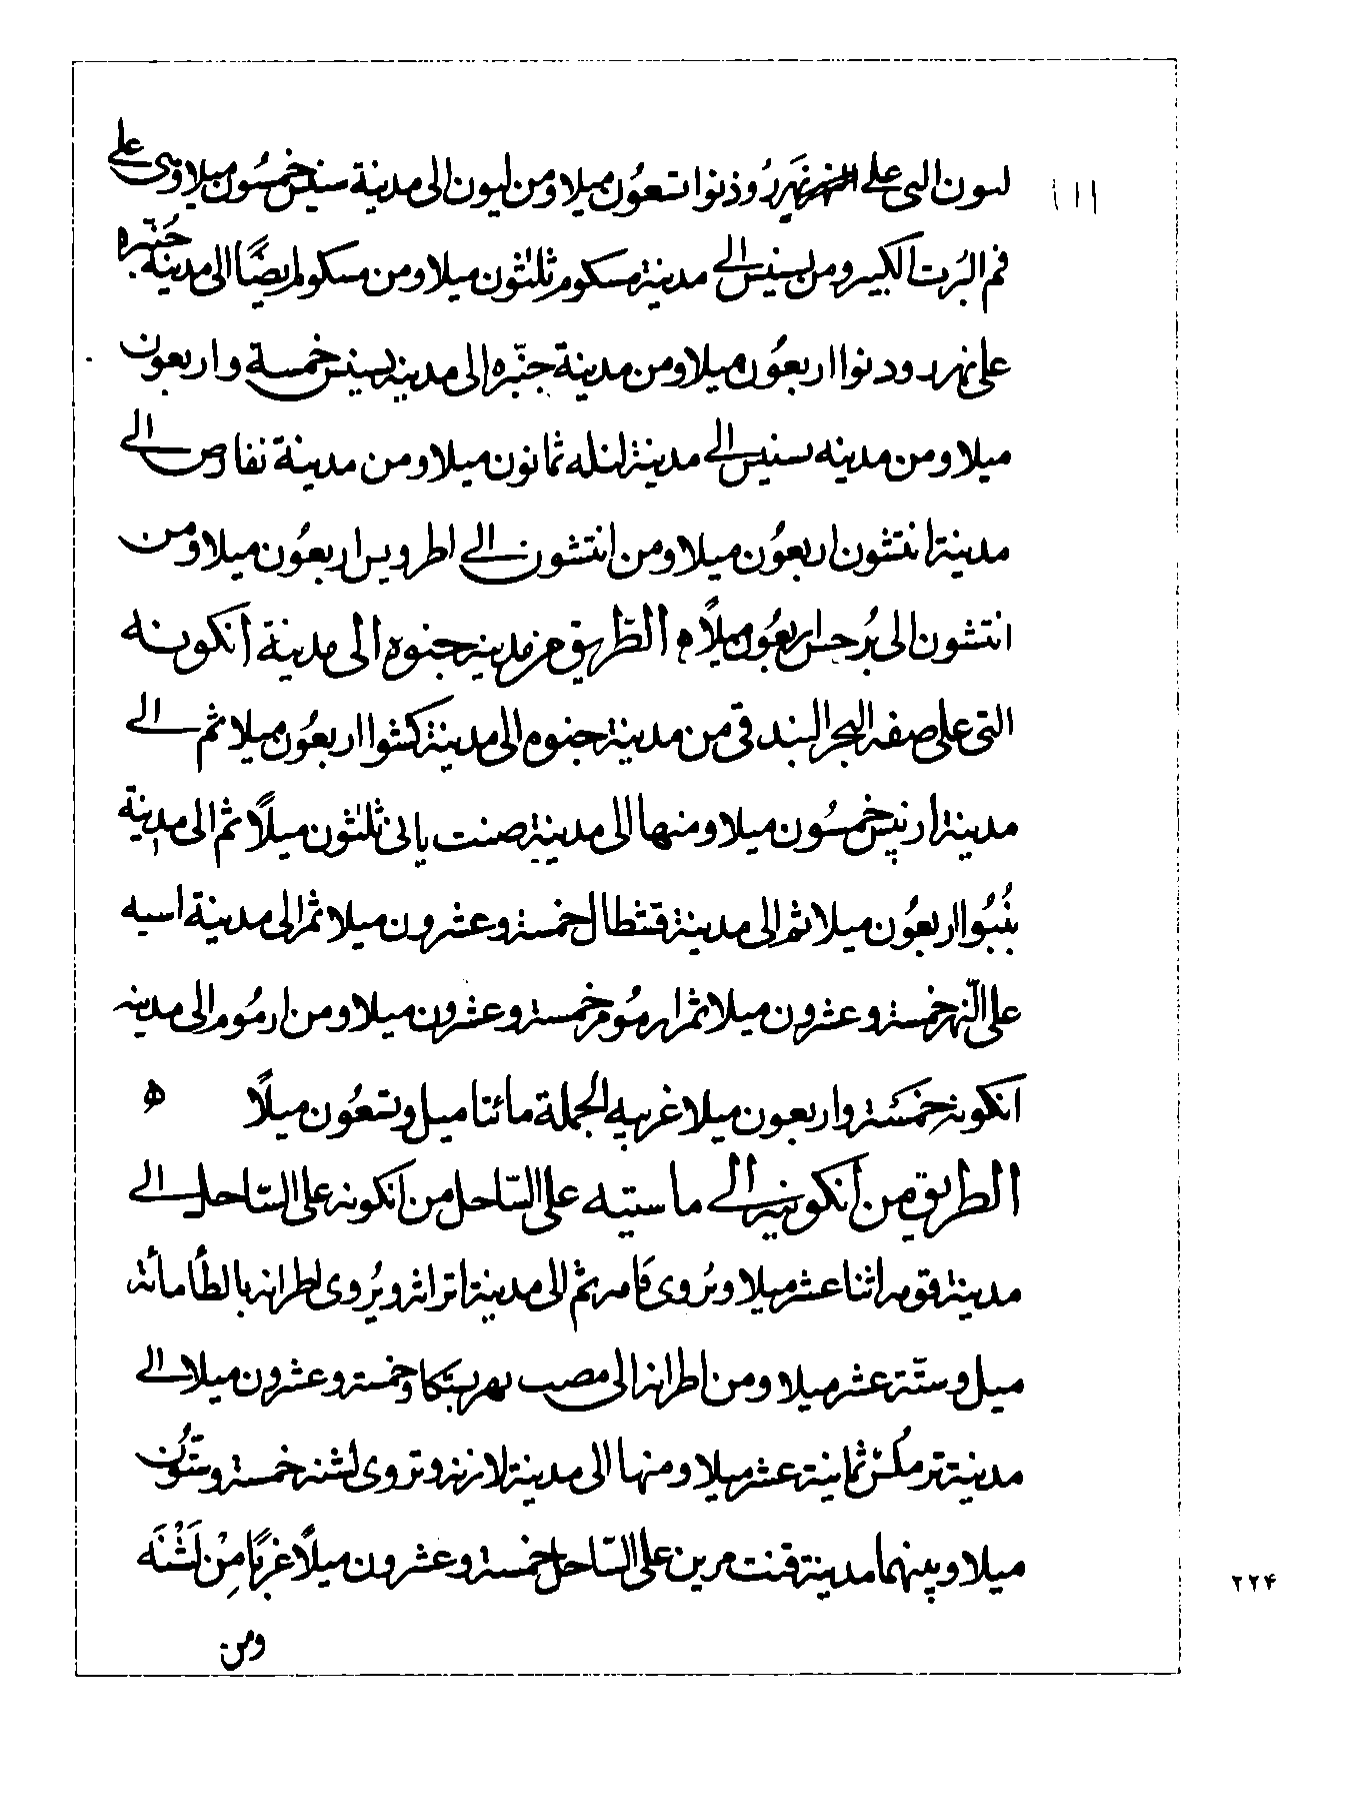 ليون التى على نهر رُوذنوا تسعُون ميلا ومن ليون الى مدينة سنيس خمسُون ميلا وهى على
١١١
فم البُرت الكبير ومن بسنيس الى مدينة مسكوم ثلثون ميلا ومن مسكوم ايضًا الى مدينة جنَبره
على نهر رودنوا اربعُون ميلا ومن مدينة جنّبره الى مدينة بسنيس خمسة واربعون
ميلا ومن مدينه بسنيس الى مدينة انله ثمانون ميلا ومن مدينة نفارص الى
مدينة انتشون اربعُون ميلا ومن انتشون الى اطرويس اربعُون ميلا ومن
انتشون الى بُرجس اربعُون ميلًا ۞ الطّريق من مدينة جنوه الى مدينة انكونه
التى على صفه البحر البندقى من مدينة جنوه الى مدينة كشوا اربعُون ميلا ثم الى
مدينة ارنيس خمسُون ميلا ومنها الى مدينة صنت يابى ثلثون ميلًا ثم الى مدينة
بُنبُوا اربعُون ميلا ثم الى مدينة قشطال خمسة وعشرون ميلا ثم الى مدينة اسيه
على النّهر خمسة وعشرون ميلا ثم ارمُوم خمسة وعشرون ميلا ومن ارمُوم الى مدينه
انكونة خمسَة واربعون ميلا غربيه الجملة مائتا ميل وتسعُون ميلًا ه
الطريق من انكونية الى ماستيه على السّاحل من انكونه على السّاحل الى
مدينة قومه اثنا عشر ميلا ويُروى قامه ثم الى مدينة اترانة ويُروى لطرانه بالطأ مأئة
ميل وستّة عشر ميلا ومن اطرانه الى مصب نهر بسكا وخمسة وعشرون ميلا الى
مدينة ترمكُس ثمانية عشر ميلا ومنها الى مدينة لازنه وتروى لشنه خمسة وستّون
ميلا وبينهما مدينة قنت مرين على السّاحل خمسة وعشرون ميلًا غربًا مِنْ لَشْنَه
٢٢۴
ومن